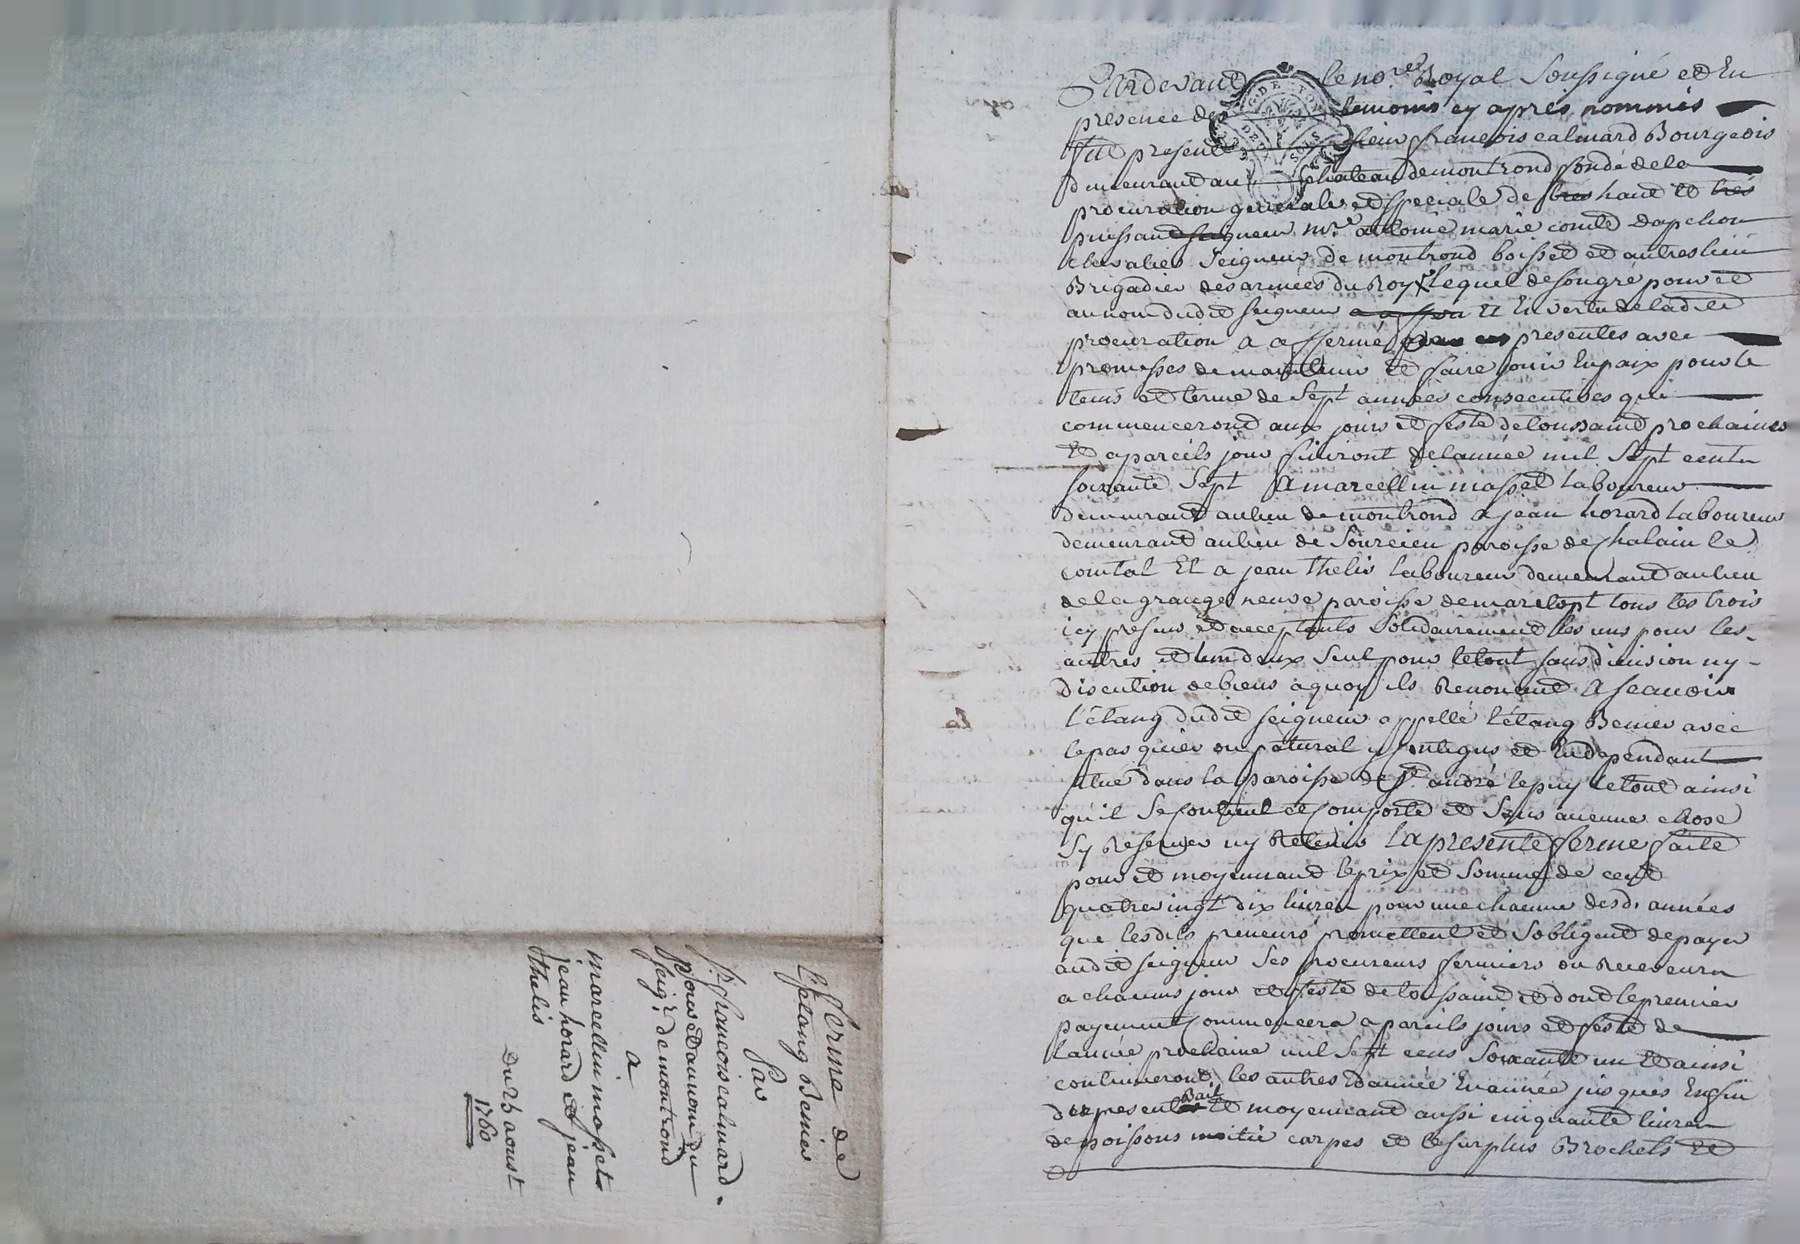 Pardevant le no.re Royal Soussigné et En
presence des temoins cy apres nommés
fut present sieur françois calmard Bourgeois
demeurant au chateau de montrond fondé de la
procuration generale et speciale de tres haut et tres
puissant seigneur m.re antoine marie comte dapchon
chevalier Seigneur de montrond boisset et autres lieu
Brigadier des armées du Roy lequel de son gré pour et
au nom dudit seigneur et En vertu de ladite
procuration a affermé presentes avec
promesses de maintenir et faire jouir En paix pour le
tems et terme de Sept années consecutives qui
commenceront aux jours et feste de toussaint prochaines
Et apareils jour finiront de lannée mil Sept cents
soixante Sept A marcellin mosset laboureur
demeurant au lieu de montrond a jean horard laboureur
demeurant au lieu de Sourcieu paroisse de chalain le
comtal Et a jean thelis laboureur demeurant au lieu
de la grange neuve paroisse de marclopt tous les trois
icy presens et acceptants Solidairement les uns pour les
autres et lun deux seul pour le tout sans division ny
discution de biens a quoy ils Renoncent A scavoir
l'étang dudit seigneur appellé l'étang Benier avec
le pasquier ou patural y contigus et Endependant
situé dans la paroisse de st. andré le puy le tout ainsi
qu'il Se contient et comporte et Sans aucune chose
sy Réserver ny Retenir la presente ferme faite
pour et moyennant le prix et Somme de cent
quatre vingt dix livres pour une chacune desd. années
que lesdits preneurs promettent et Sobligent de payer
audit seigneur Ses procureurs fermiers ou Receveurs
a chacuns jour et feste de toussaint et dont le premier
payement commencera a pareils jours et feste de
lannée prochaine mil Sept cens Soixante un Et ainsi
continueront les autres Dannée En année jusques Enfin
du present Bail Et moyennant aussi cinquante livres
de poissons moitié carpes et le surplus Brochets Et
ferme de
lestang Benier
Par
Sr. francois calmard
pour et au nom du
seigr. de montrond
a
marcellin mosset
jean horard et jean
thelis
Du 25 aoust
1760